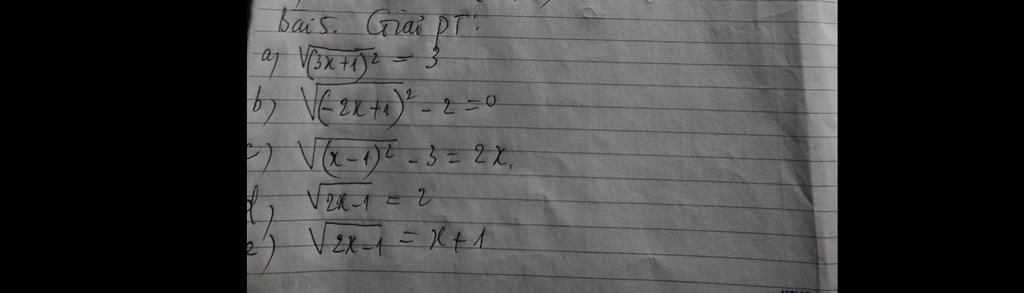 Bài 5. Giải PT:
a) √(3x+1)² = 3
b) √(-2x+1)² - 2 = 0
c) √(x-1)² - 3 = 2x.
d) √2x-1 = 2
e) √2x-1 = x+1